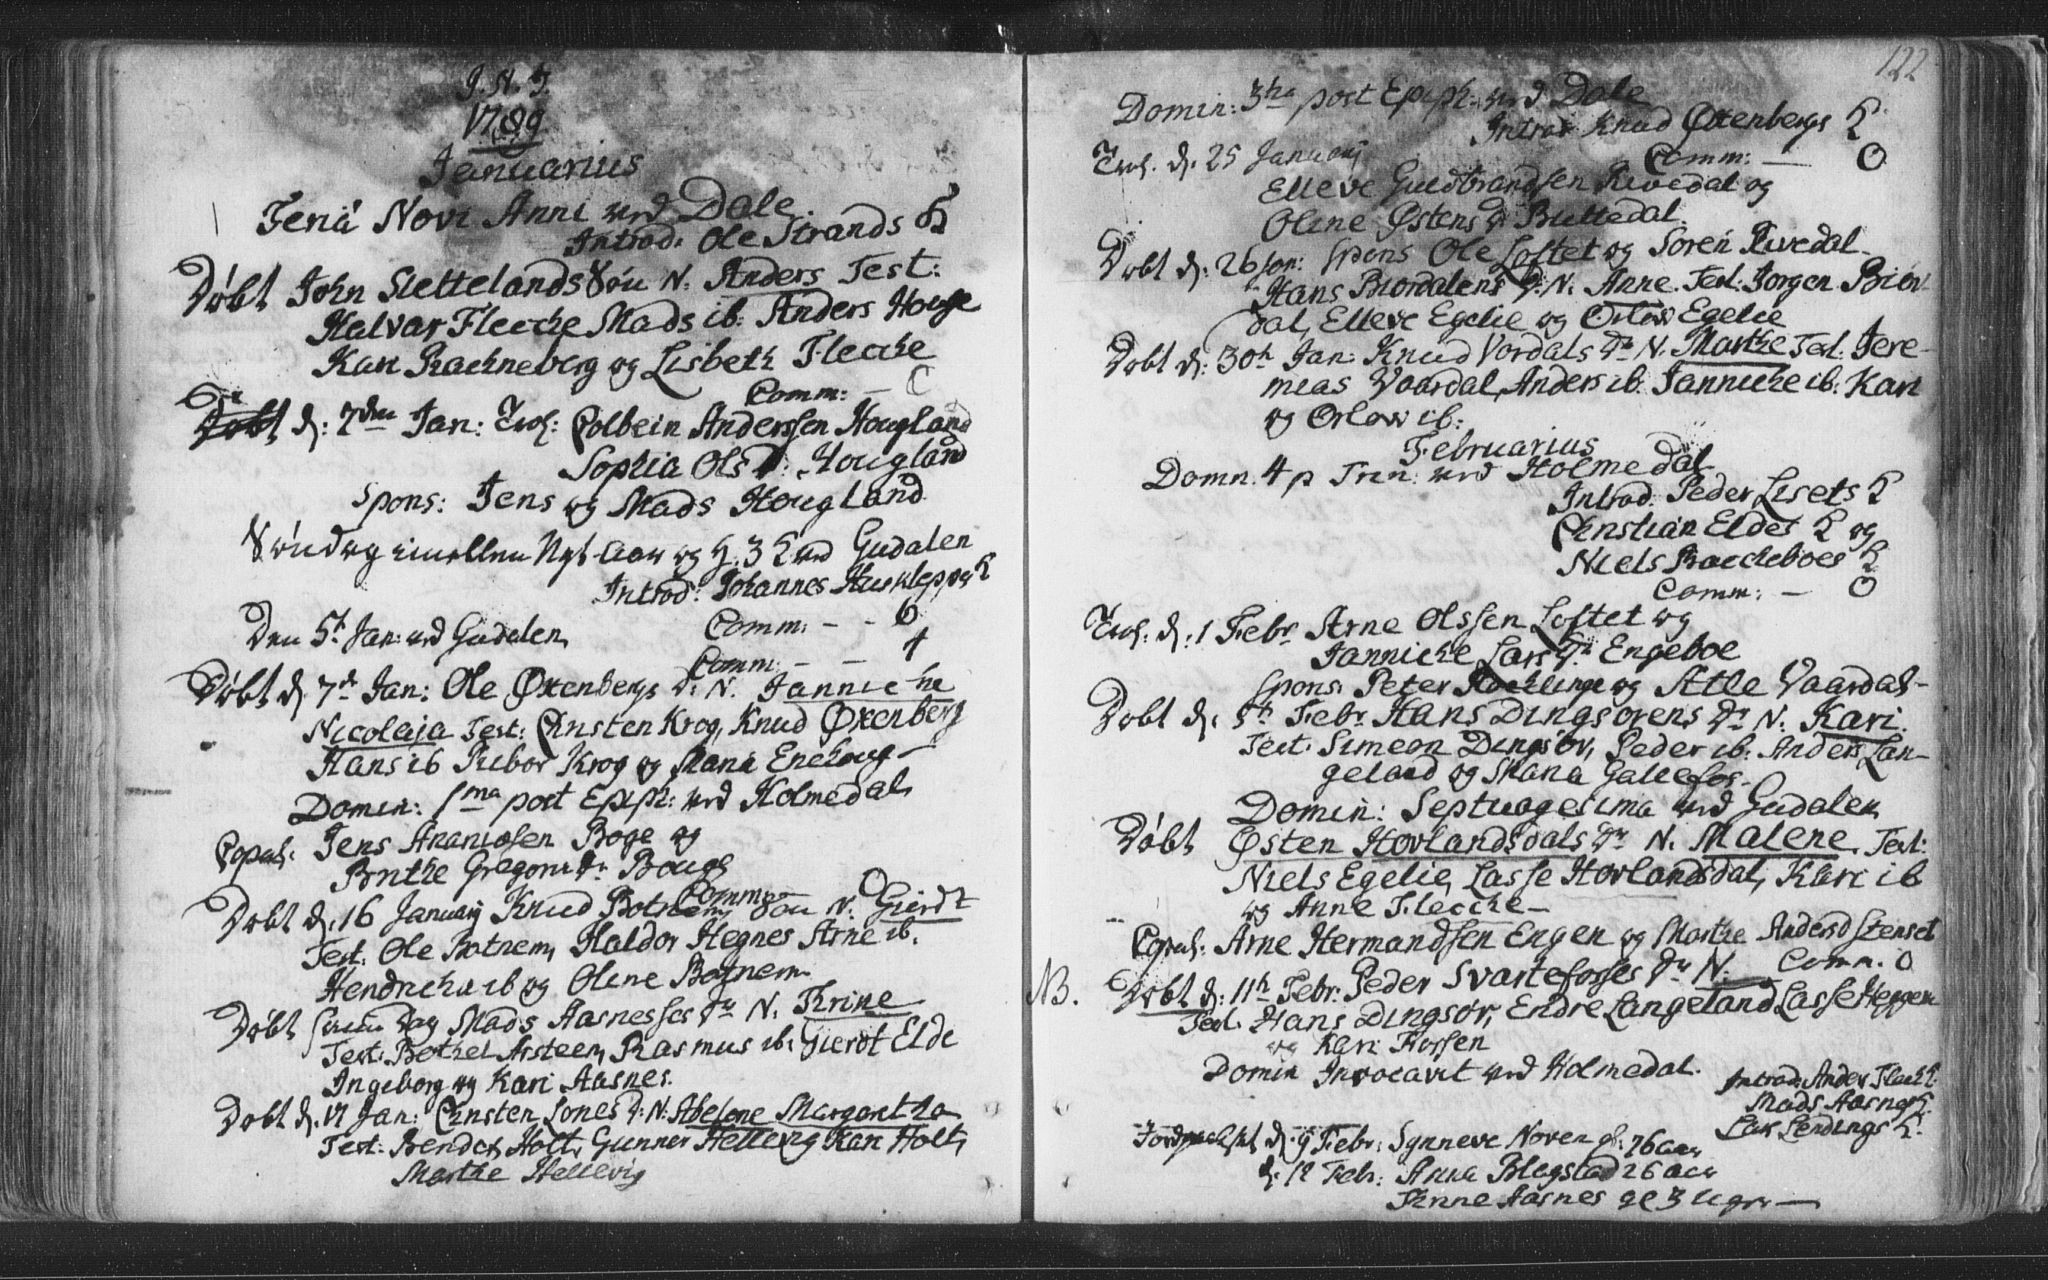 J. N. J.
1789
Januarius
Feriá Novi Anni ved Dale
Introd: Ole Strands K
Døbt John Slettelands Søn N. Anders Test:
Halvar Flecke Mads ib: Anders Houge
Kari Rachneberg og Lisbeth Flecke
Comm: — O
d: 7den Jan: Trol: Colbein Anderssen Hougland
Sophia Ols D: Hougland
Spons: Jens og Mads Hougland
Søndag imellem Nyt-aar og H. 3 K ved Gudalen
Introd: Johannes Huskleppes K
Comm: - - 6
Den 5t Jan: ved Gudalen
Comm: - - 4
Døbt d. 7d Jan: Ole Øxenbergs D: N. Jannicke
Nicolaja Test: Christen Krog, Knud Øxenberg
Hans ib Rebor Krog og Maria Enehoug
Domin: 1ma post Epiph: ved Holmedal
Copul: Jens Ananiasen Boge og
Brithe Gregorii Dr Bouge
Comm: O
Døbt d. 16 Januarij Knud Botnem Søn N. Gierdt
Test: Ole Botnem, Haldor Hegnes Arne ib.
Hendricha ib og Oline Botnem
Døbt samme Dag Mads Aasnesses Dr N. Thrine
Test: Bothel Arsteen, Rasmus ib: Gierdt Elde
Ingeborg og Kari Aasnes.
Døbt d. 17 Jan: Christen Lones D: N: Abelone Margaretha
Test: Bendix Holt, Gunner Hellevig Kari Holt,
Marthe Hellevig
122
Domin: 3tia post Epiph: ved Dale
Introd Knud Øxenbergs K
Comm: — O
Trol. d: 25 Januarij
Elleve Guldbrandsen Rivedal og
Oline Østens Dr Buttedal.
Spons Ole Loftet og Soren Rivedal
Døbt d: 26 Jan:
Hans Biordalens D: N. Anne. Test: Jorgen Bior-
dal, Elleve Egelie og Orlow Egelie
Døbt d: 30th Jan: Knud Vordals Dr N. Marthe Test: Jere-
mias Vaardal, Anders ib: Jannicke ib: Kari
og Orlow ib:
Februarius
Domn. 4 p Trin: ved Holmedal
Introd: Peder Lisets K
Christian Eldes K og
Niels Raeckeboes K
Comm: — O
Trol: d: 1 Febr Arne Olssen Loftet og
Jannicke Lars Dr Engeboe
Spons: Peter og Atle Vaardal-
Døbt d. 5t Febr. Hans Dingsørens Dr N. Kari.
Test: Simeon Dingsør, Peder ib. Anders Lan-
geland og Maria Gallefos-
Domin: Septuagesima ved Gudalen
Døbt Østen Hovlandsdals Dr N. Malene. Test:
Niels Egelie, Lasse Hovlandsdal, Kari ib
og Anne Flecke
Copul: Arne Hermandsen Engen og Marthe Andersd Stenset
Comm. O
NB. Døbt d: 11th Febr: Peder Svartefosses Dr N.
Test. Hans Dingsør, Endre Langeland Lasse Heggen
og Kari Fossen
Domin Invocavit ved Holmedal.
Introd: Anders Flecke K.
Mads Aasnes K.
Lars Lendings K.
Jordpaakast d. 9 Febr: Synneve Noven gl: 76 aar
d: 12 Febr: Anna Blegstad 26 aar
Thrine Aasnes gl 3 Uger —